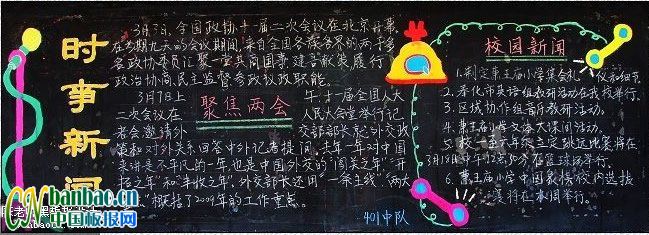 时事新河
3月3日,全国政协十一届二次会议在北京开幕
在为期九天的会议期间,来自全国各族各界的二千多
名政协委员汇聚一堂共商国事建言献策履行
政治协商民主监督参政议政职能。
聚焦两会
3月7日上午十一届全国人大
二次会议在人民大会堂举行记
者会邀请外交部部长就外交政
策和对外关系回答中外记者提问,去年一年对中国
来讲是不平凡的一年也是中国外交的
之年"和"丰收之年",外交部长还用"一条主线""两大
"概括了2009年的工作重点。
校园新闻
1.制定惠王庙小学集会礼仪
2.奉化市英语组教研活动在我校举行。
3.区域协作组音乐教研活动。
4.惠王庙小学文体大课间活动。
5.校三至六年级立定跳远比赛将在
3月18日中午12点30分在篮球场举行。
6.惠王庙小学中国象棋校内选拔
赛将在本周举行。
401中队
CNbanbao.cn
中国板报网